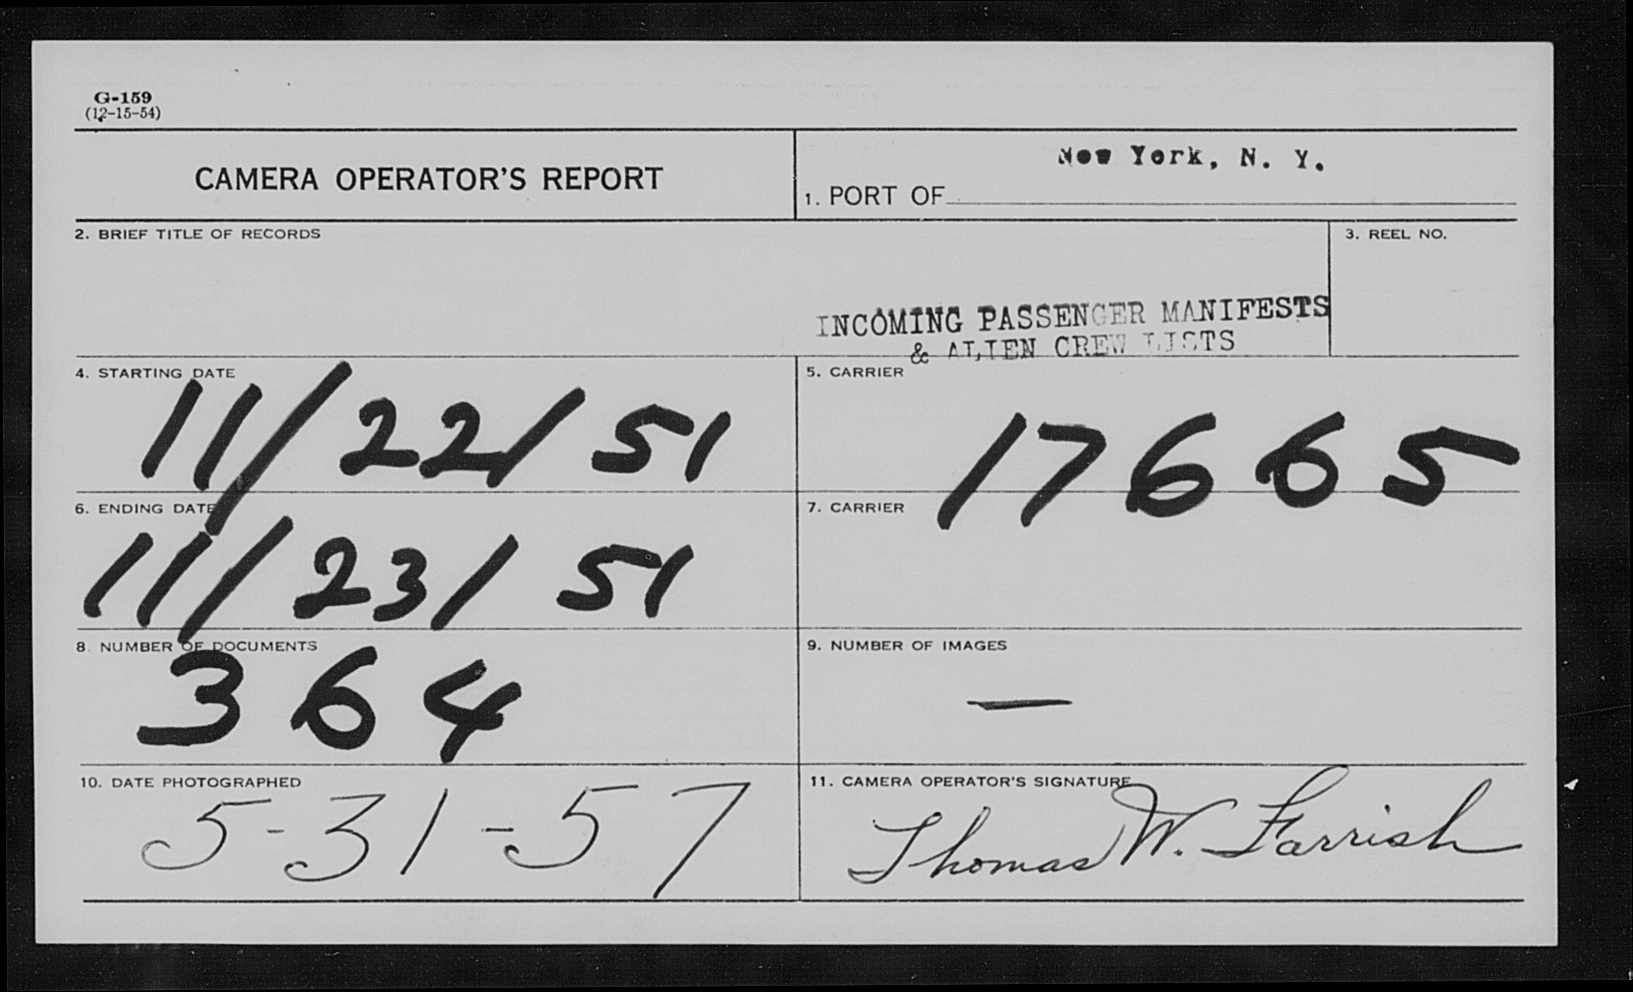 G-159
(12-15-54)
CAMERA OPERATOR'S REPORT
New York, N. Y.
1. PORT OF
2. BRIEF TITLE OF RECORDS
3. REEL NO.
INCOMING PASSENGER MANIFESTS
& ALIEN CREW LISTS
4. STARTING DATE
11/22/51
5. CARRIER
17665
6. ENDING DATE
11/23/51
7. CARRIER
8. NUMBER OF DOCUMENTS
364
9. NUMBER OF IMAGES
—
10. DATE PHOTOGRAPHED
5-31-57
11. CAMERA OPERATOR'S SIGNATURE
Thomas W. Farrish